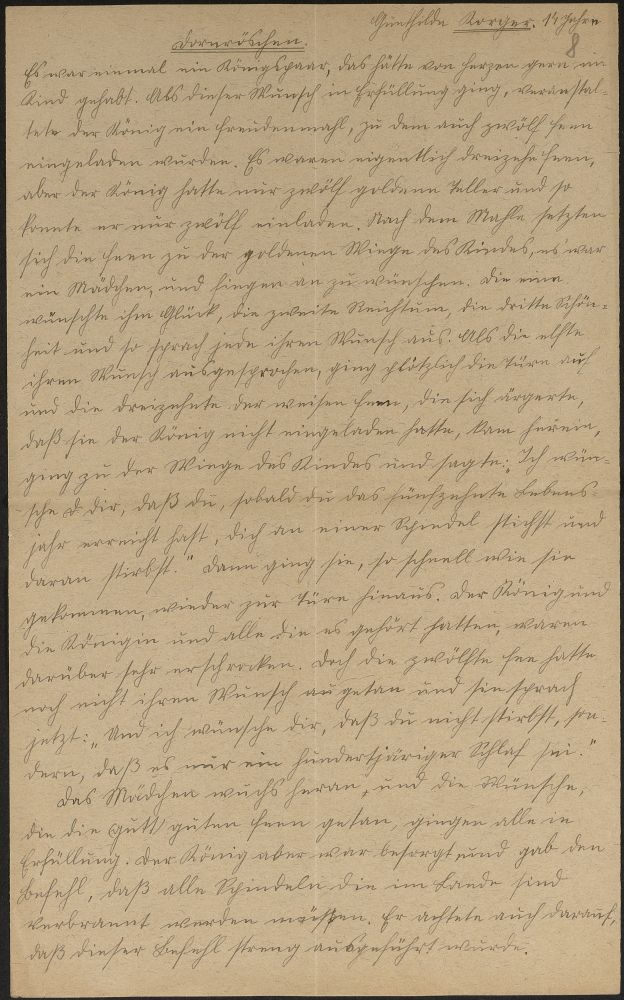 Günthilde Korger. 14 Jahre
8
Dornröschen.
Es war einmal ein Königspaar, das hätte von Herzen gern ein
Kind gehabt. Als dieser Wunsch in Erfüllung ging, veranstal-
tete der König ein Freudenmahl, zu dem auch zwölf Feen
eingeladen wurden. Es waren eigentlich dreizehn Feen,
aber der König hatte nur zwölf goldene Teller und so
konnte er nur zwölf einladen. Nach dem Mahle setzten
sich die Feen zu der goldenen Wiege des Kindes, es war
ein Mädchen, und fingen an zu wünschen. Die eine
wünschte ihm Glück, die zweite Reichtum, die dritte Schön-
heit und so sprach jede ihren Wunsch aus. Als die elfte
ihren Wunsch ausgesprochen, ging plötzlich die Türe auf
und die dreizehnte der weisen Feen, die sich ärgerte,
daß sie der König nicht eingeladen hatte, kam herein,
ging zu der Wiege des Kindes und sagte: „Ich wün-
sche d dir, daß du, sobald du das fünfzehnte Lebens-
jahr erreicht hast, dich an einer Spindel stichst und
daran stirbst." Dann ging sie, so schnell wie sie
gekommen, wieder zur Türe hinaus. Der König und
die Königin und alle die es gehört hatten, waren
darüber sehr erschrocken. Doch die zwölfte Fee hatte
noch nicht ihren Wunsch angetan und sie sprach
jetzt: „Und ich wünsche dir, daß du nicht stirbst, son-
dern, daß es nur ein hundertjäriger Schlaf sei."
Das Mädchen wuchs heran, und die Wünsche,
die die gutt guten Feen getan, gingen alle in
Erfüllung. Der König aber war besorgt und gab den
Befehl, daß alle Spindeln die im Lande sind
verbrannt werden müssen. Er achtete auch darauf,
daß dieser Befehl streng ausgeführt wurde.